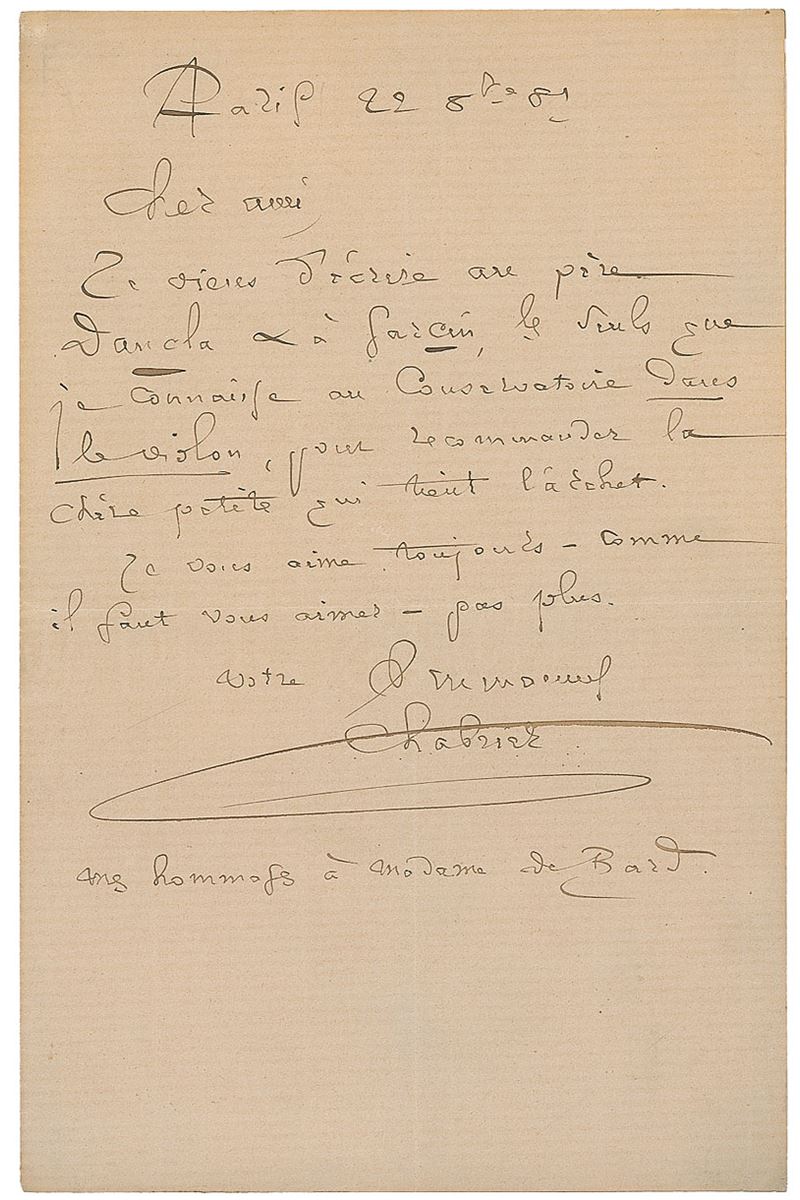 Paris 22 8bre 81
Cher ami,
Je viens d'écrire au père
Dancla & à Garcin, les seuls que
je connaisse au Conservatoire dans
le violon, pour recommander la
chère petite qui tient l'archet.
Je vous aime toujours – comme
il faut vous aimer – pas plus.
Votre Emmanuel
Chabrier
mes hommages à Madame de Bard.